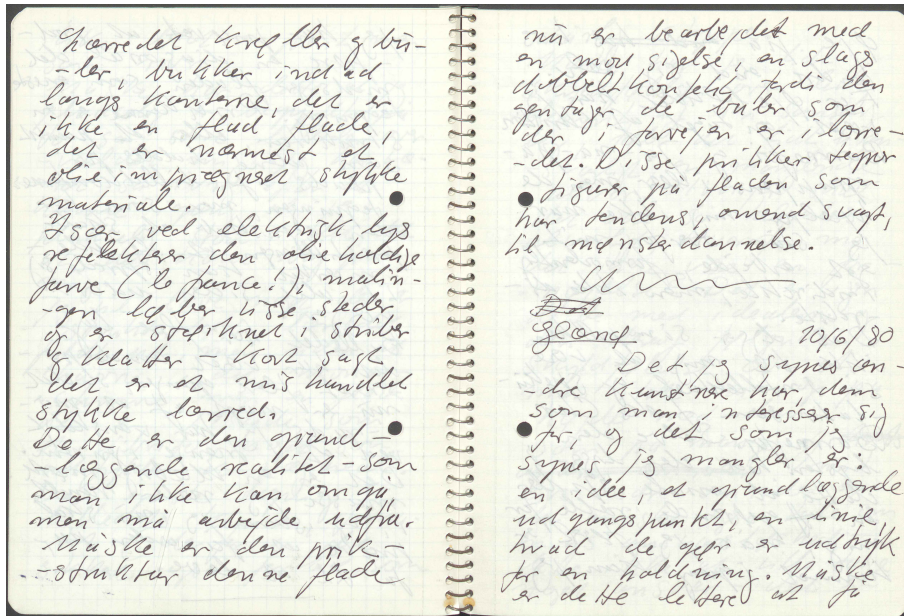 Lærredet krøller og bu-
-ler, bukker indad
langs kanterne, det er
ikke en flad flade,
det er nærmest et
olieimprægneret stykke
materiale.
Især ved elektrisk lys
reflekterer den olieholdige
farve (le franc!), malin-
-gen løber visse steder
og er størknet i striber
og klatter – kort sagt
det er et mishandlet
stykke lærred.
Dette er den grund-
-læggende realitet – som
man ikke kan omgå,
men må arbejde udfra.
Måske er den prik-
-struktur denne flade
nu er bearbejdet med
en modsigelse, en slags
dobbeltkonfekt, fordi den
gentager de buler som
der i forvejen er i lærre-
-det. Disse prikker tegner
figurer på fladen som
har tendens, omend svagt,
til mønsterdannelse.
Det
10/6/80
Det jg synes an-
-dre kunstnere har, dem
som man interesserer sig
for, og det som jeg
synes jeg mangler er:
en idee, et grundlæggende
udgangspunkt, en linie,
hvad de gør er udtryk
for en holdning. Måske
er dette lettere at få